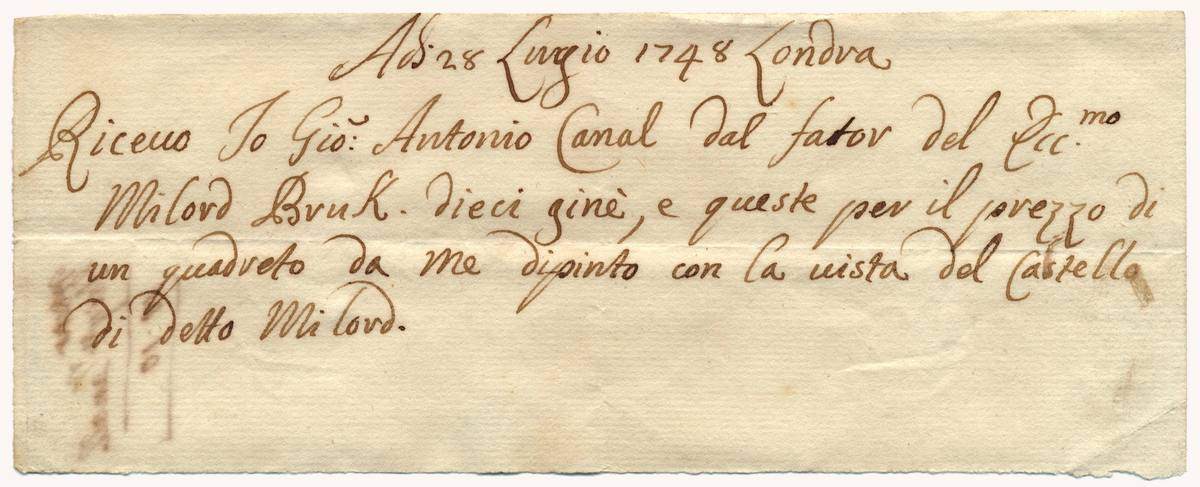 Adi 28 Lugio 1748 Londra
Riceuo Io Gio: Antonio Canal dal fator del Ecc.mo
Milord Bruk. dieci ginè, e queste per il prezzo di
un quadreto da me dipinto con la uista del Castello
di detto Milord.